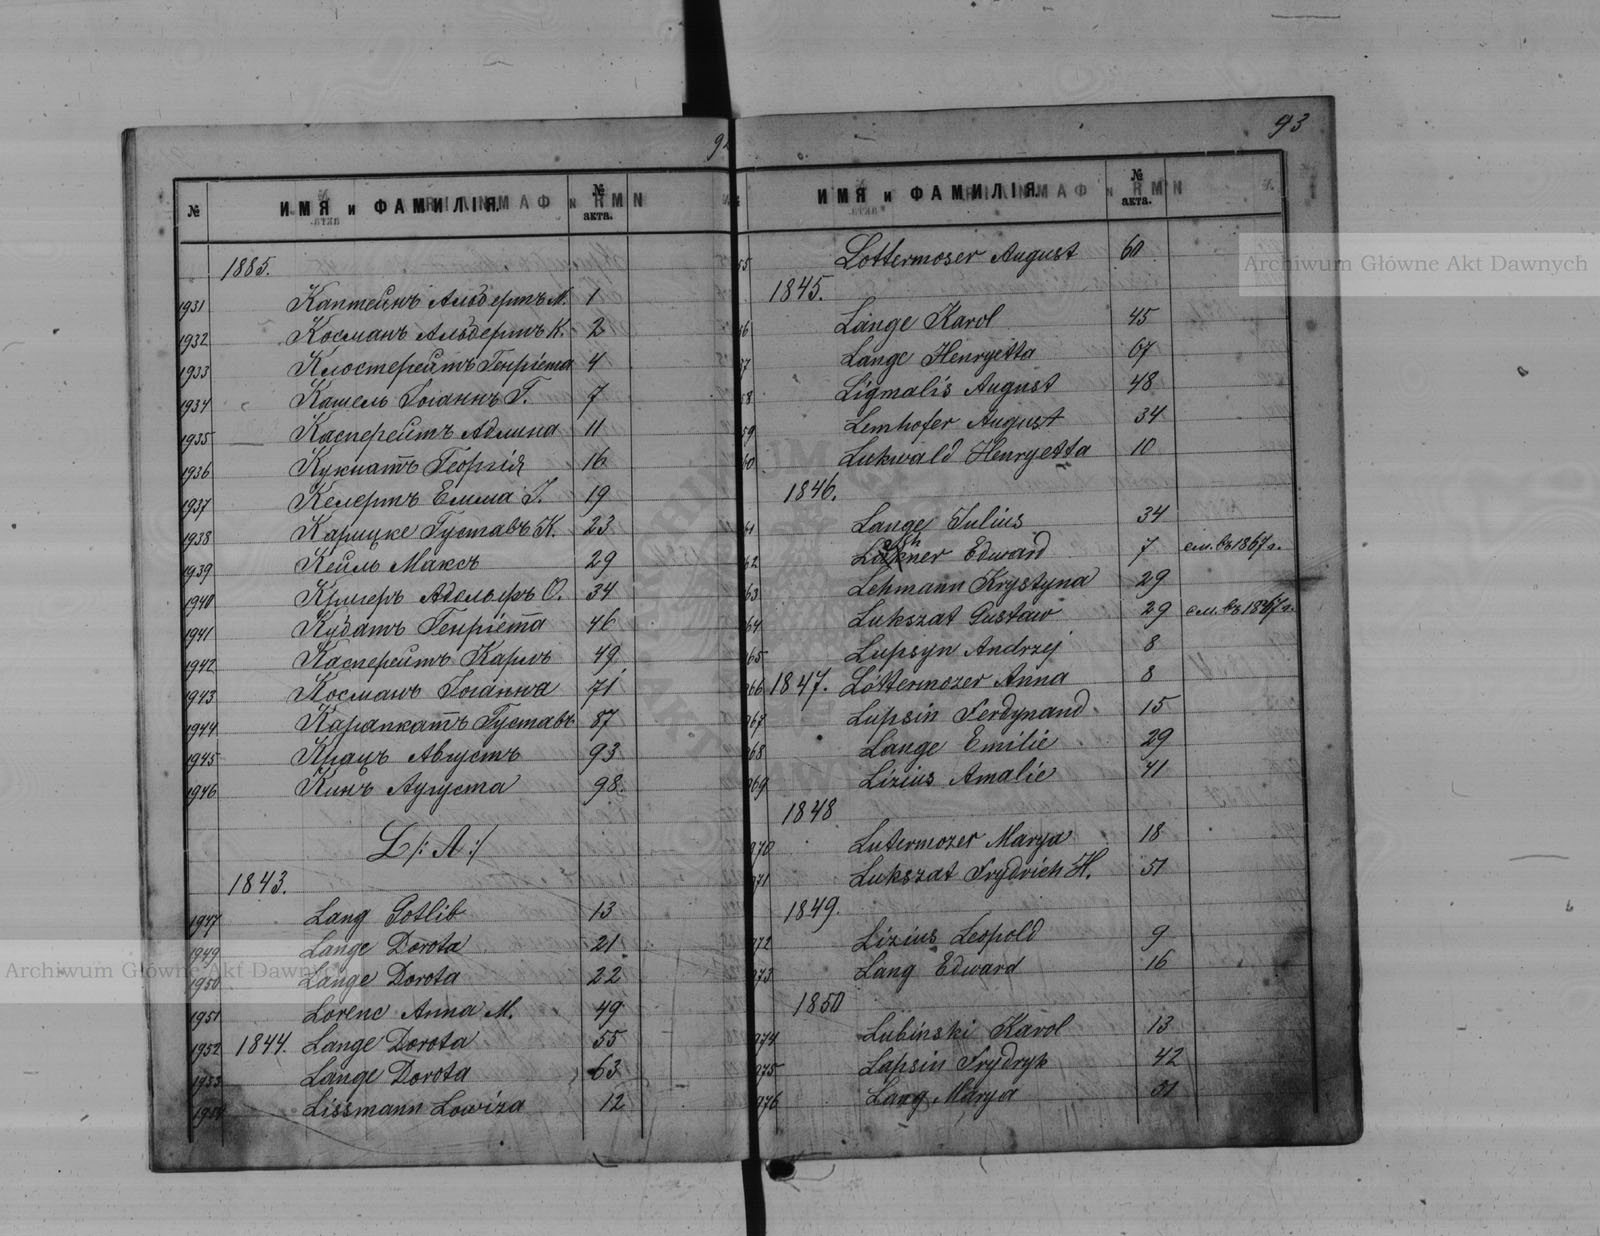 92
№ ИМЯ и ФАМИЛІЯ. № акта.
1885.
1931 Каптейнъ Альбертъ М. 1
1932 Косманъ Альбертъ К. 2
1933 Клостерейтъ Генріета 4
1934 Кашель Іоганъ Г. 7
1935 Касперейтъ Адлина 11
1936 Кукнатъ Георгія 16
1937 Келертъ Емма І. 19
1938 Карицке Густавъ К. 23
1939 Кейль Максъ 29
1940 Кригеръ Адольфъ О. 34
1941 Кубатъ Генріета 46
1942 Касперейтъ Карлъ 49
1943 Косманъ Іоганна 71
1944 Карапкатъ Густавъ 87
1945 Крацъ Августъ 93
1946 Кинъ Аугуста 98.
L /: Л :/
1843.
1947 Lang Gotlib 13
1949 Lange Dorota 21
1950 Lange Dorota 22
1951 Lorenc Anna M. 49
1952 1844. Lange Dorota 55
1953 Lange Dorota 63
1954 Lissmann Lowiza 12
93
ИМЯ и ФАМИЛІЯ. № акта.
55 Lottermoser August 60
1845.
56 Lange Karol 45
57 Lange Henryetta 67
58 Ligmalis August 48
59 Lemhofer August 34
60 Lukwald Henryetta 10
1846.
61 Lange Julius 34
62 Edward 7 см. въ 1867 г.
63 Lehmann Krystyna 29
64 Lukszat Gustaw 29 см. въ 1867 г.
965 Lupsyn Andrzej 8
966 1847. Lottermozer Anna 8
967 Lupsin Ferdynand 15
968 Lange Emilie 29
969 Lizius Amalie 41
1848
970 Lutermozer Marya 18
971 Lukszat Frydrich H. 51
1849.
972 Lizius Leopold 9
973 Lang Edward 16
1850
974 Lubinski Karol 13
975 Lapsin Frydryk 42
976 Lang Marya 01
Archiwum Główne Akt Dawnych
Archiwum Główne Akt Dawnych